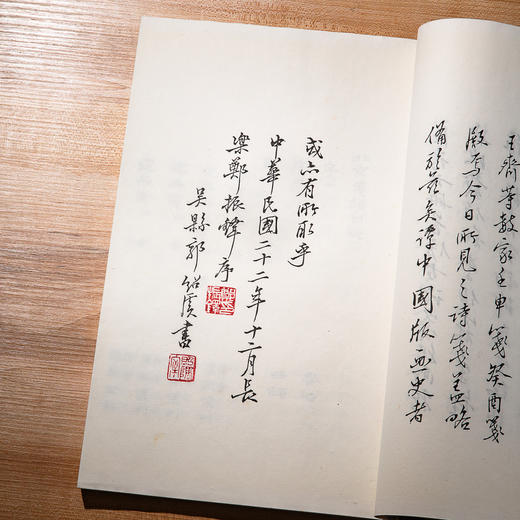 王齊等數家壬申箋癸酉箋
殿焉今日所見之詩箋蓋略
備於茲矣譚中國版畫史者
或亦有所取乎
中華民國二十二年十二月長
樂鄭振鐸序
吳縣郭紹虞書